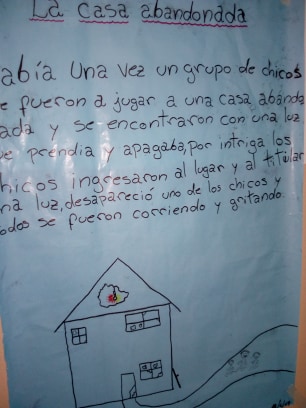 La casa abandonada
abía Una vez un grupo de chicos
e fueron a jugar a una casa abando
ada y se encontraron con una luz
ue prendia y apagaba, por intriga los
hicos ingresaron al lugar y al titular
na luz, desapareció uno de los chicos y
odos se fueron corriendo y gritando.